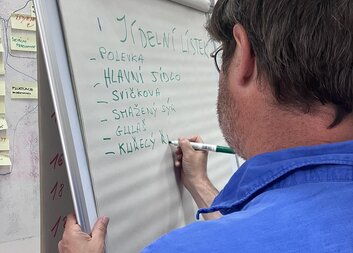 JÍDELNÍ LÍSTEK
- POLEVKA
- HLAVNÍ JÍDLO
- SVÍČKOVA
- SMAŽENÝ SÝR
- GULÁŠ
- KUŘECÝ Ř
16
18